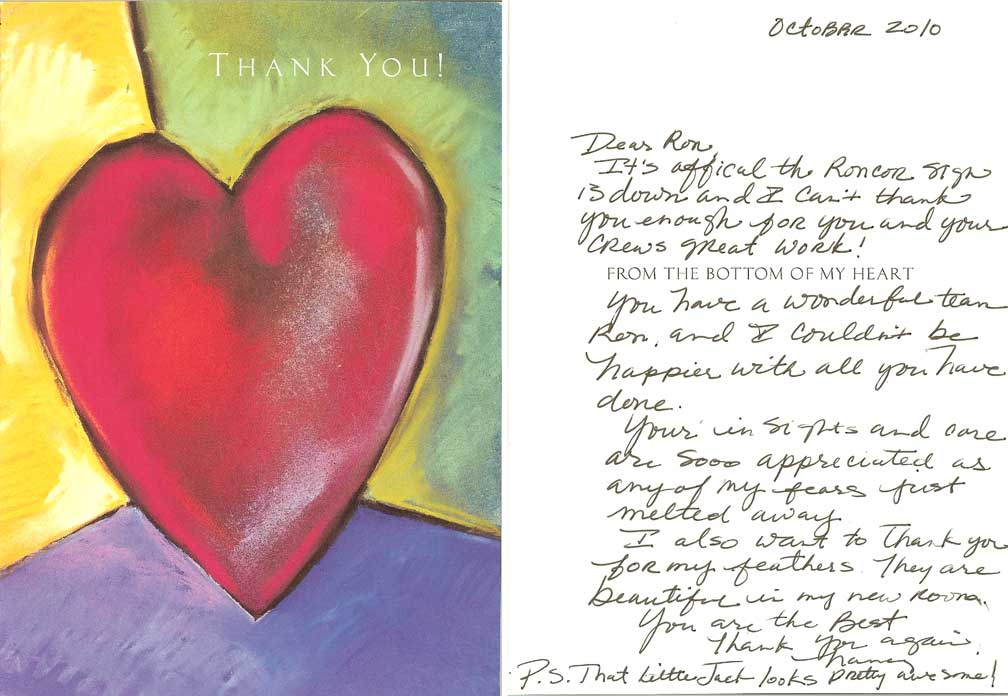 THANK YOU!
OCTOBRR 2010
Dear Ron,
It's offical the RONCOR Sign
is down and I can't thank
you enough for you and your
CREWS great work!
FROM THE BOTTOM OF MY HEART
You have a wonderful team
Ron, and I couldn't be
happier with all you have
done.
Your in sights and care
are Sooo appreciated as
any of my fears just
melted away.
I also want to Thank you
for my feathers. They are
beautiful in my new Room.
You are the Best
Thank You again,
Nancy
P.S. That Little Jack looks pretty awesome!